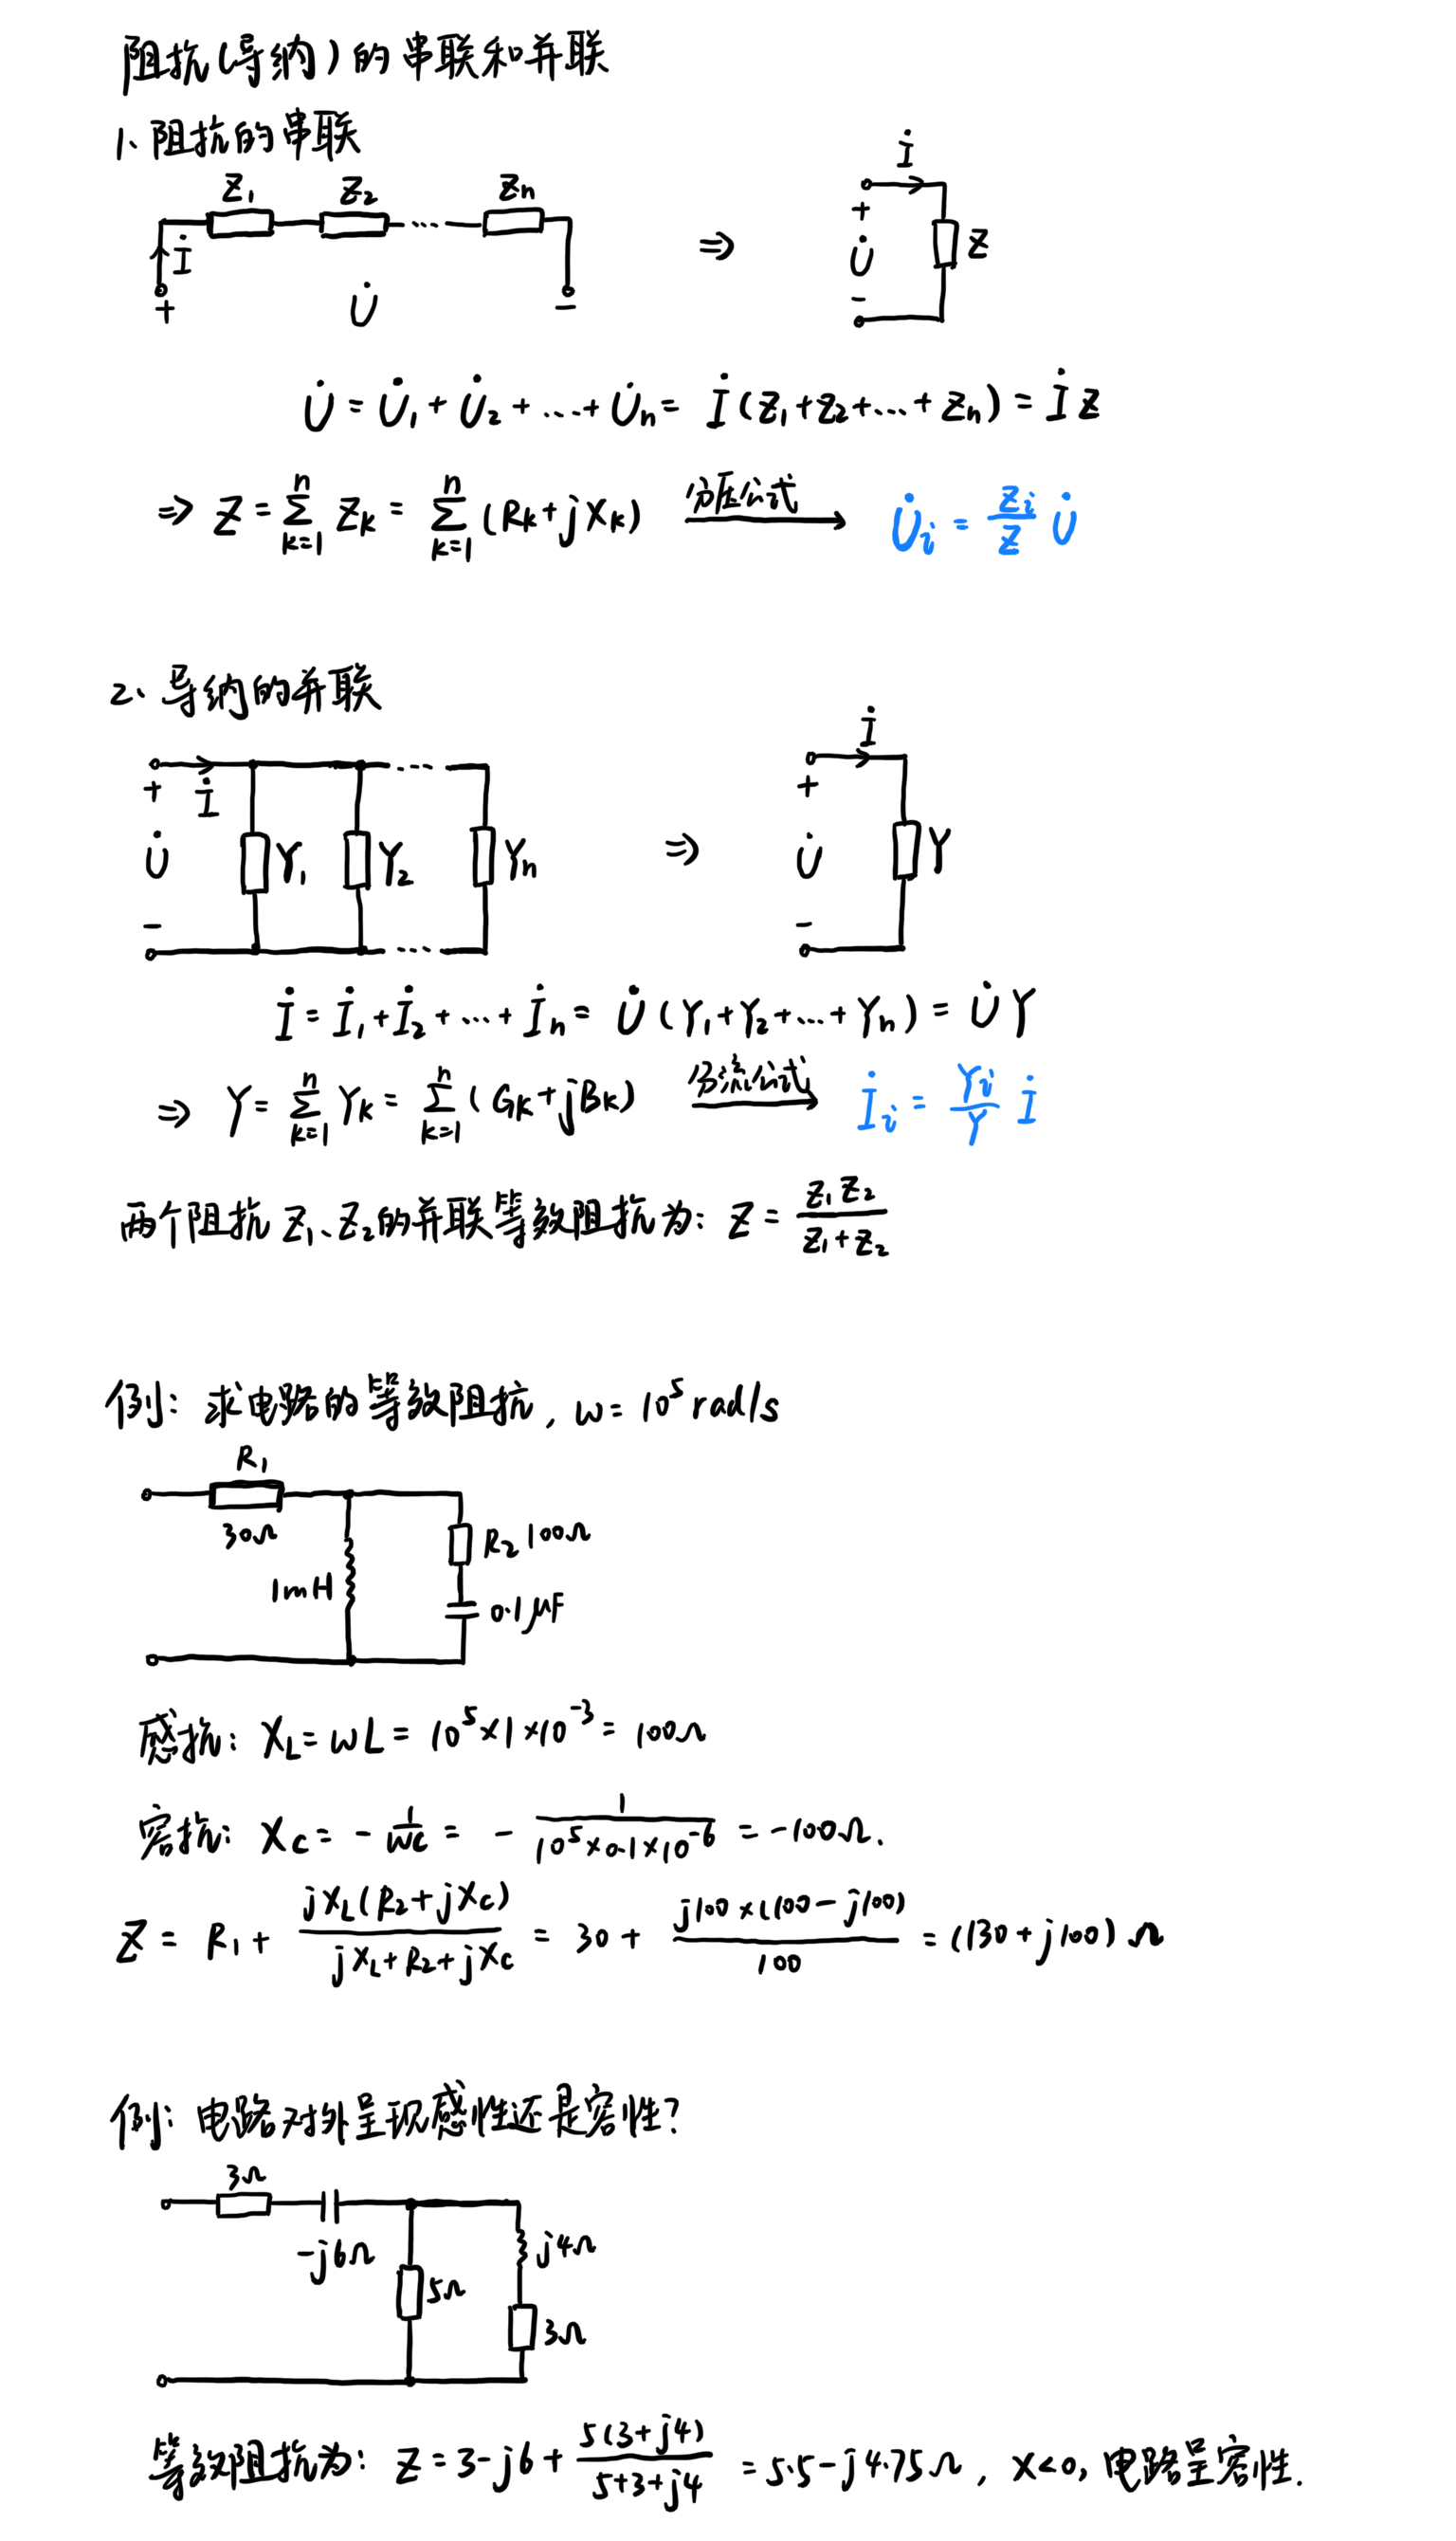 阻抗(导纳)的串联和并联
1、阻抗的串联
Z₁ Z₂ … Zn
İ
+ U̇ −
⇒
İ
+
U̇
−
Z
U̇ = U̇₁ + U̇₂ + … + U̇n = İ(Z₁+Z₂+…+Zn) = İZ
⇒ Z = ∑(k=1→n) Zk = ∑(k=1→n) (Rk+jXk) 分压公式 → U̇i = Zi/Z U̇
2、导纳的并联
İ
+
U̇
−
Y₁ Y₂ … Yn
⇒
İ
+
U̇
−
Y
İ = İ₁+İ₂+…+İn = U̇(Y₁+Y₂+…+Yn) = U̇Y
⇒ Y = ∑(k=1→n) Yk = ∑(k=1→n) (Gk+jBk) 分流公式 → İi = Yi/Y İ
两个阻抗Z₁、Z₂的并联等效阻抗为: Z = Z₁Z₂/(Z₁+Z₂)
例: 求电路的等效阻抗, ω=10⁵rad/s
R₁
30Ω
1mH
R₂ 100Ω
0.1μF
感抗: XL=ωL=10⁵×1×10⁻³=100Ω
容抗: Xc=-1/ωC=-1/(10⁵×0.1×10⁻⁶)=-100Ω.
Z = R₁ + jXL(R₂+jXc)/(jXL+R₂+jXc) = 30 + j100×(100-j100)/100 = (130+j100)Ω
例: 电路对外呈现感性还是容性?
3Ω
-j6Ω
5Ω
j4Ω
3Ω
等效阻抗为: Z=3-j6+5(3+j4)/(5+3+j4)=5.5-j4.75Ω, X<0, 电路呈容性.